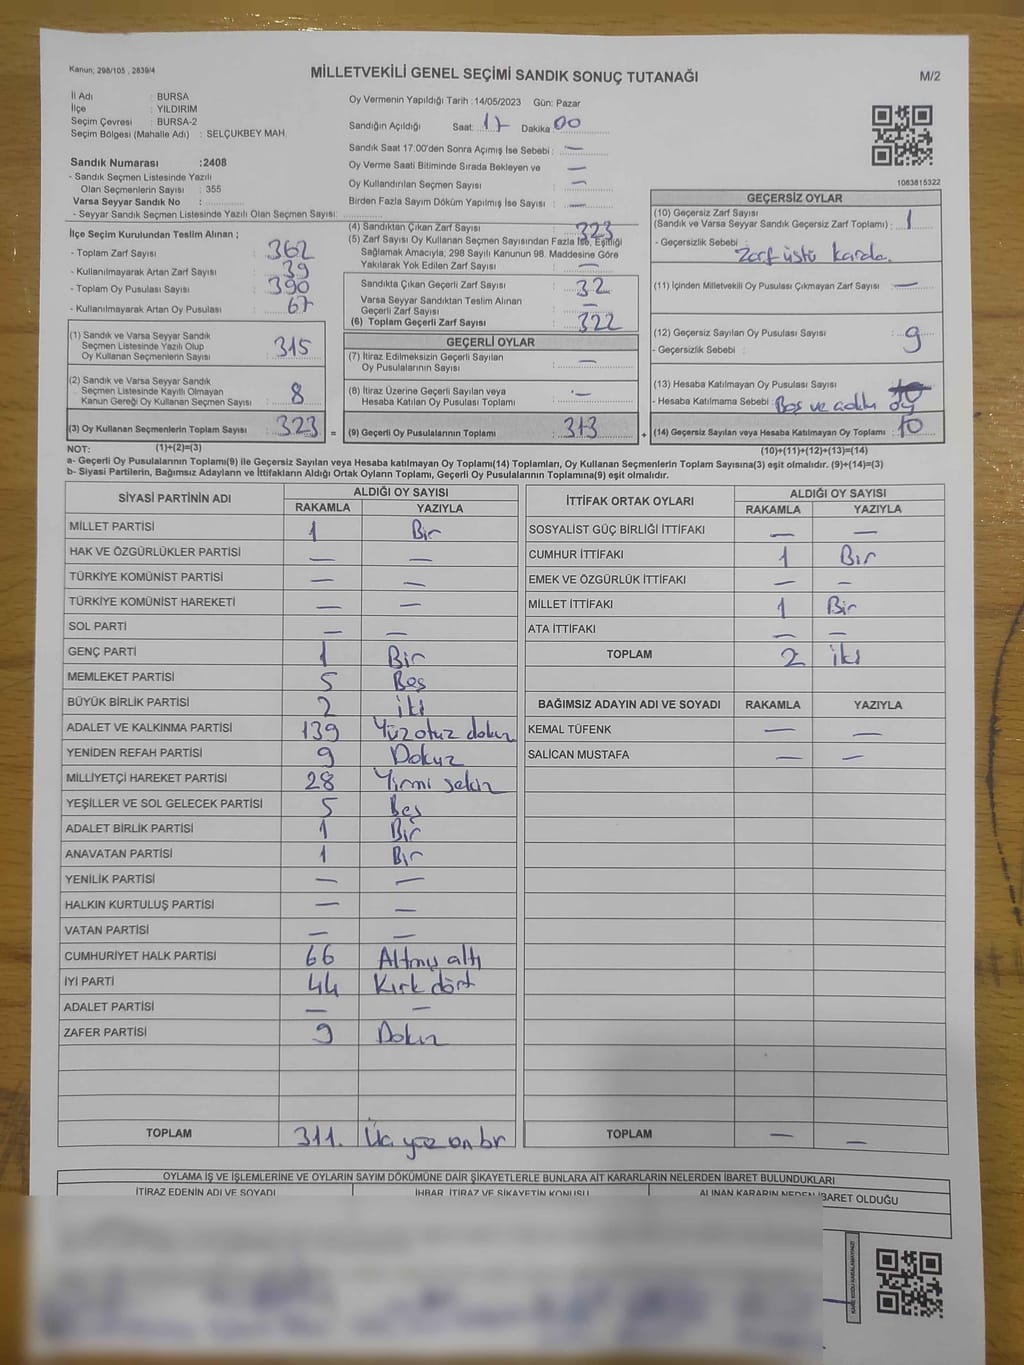 Kanun; 298/105 , 2839/4
MİLLETVEKİLİ GENEL SEÇİMİ SANDIK SONUÇ TUTANAĞI
M/2
İl Adı : BURSA
İlçe : YILDIRIM
Seçim Çevresi : BURSA-2
Seçim Bölgesi (Mahalle Adı) : SELÇUKBEY MAH.
Sandık Numarası :2408
- Sandık Seçmen Listesinde Yazılı
Olan Seçmenlerin Sayısı : 355
Varsa Seyyar Sandık No :
- Seyyar Sandık Seçmen Listesinde Yazılı Olan Seçmen Sayısı:
Oy Vermenin Yapıldığı Tarih :14/05/2023 Gün: Pazar
Sandığın Açıldığı Saat: 17 Dakika 00
Sandık Saat 17:00'den Sonra Açımış İse Sebebi : —
Oy Verme Saati Bitiminde Sırada Bekleyen ve —
Oy Kullandırılan Seçmen Sayısı —
Birden Fazla Sayım Döküm Yapılmış İse Sayısı : —
1063815322
İlçe Seçim Kurulundan Teslim Alınan ;
- Toplam Zarf Sayısı : 362
- Kullanılmayarak Artan Zarf Sayısı : 39
- Toplam Oy Pusulası Sayısı : 390
- Kullanılmayarak Artan Oy Pusulası : 67
(1) Sandık ve Varsa Seyyar Sandık
Seçmen Listesinde Yazılı Olup
Oy Kullanan Seçmenlerin Sayısı : 315
(2) Sandık ve Varsa Seyyar Sandık
Seçmen Listesinde Kayıtlı Olmayan
Kanun Gereği Oy Kullanan Seçmen Sayısı : 8
(3) Oy Kullanan Seçmenlerin Toplam Sayısı : 323 =
(4) Sandıktan Çıkan Zarf Sayısı : 323
(5) Zarf Sayısı Oy Kullanan Seçmen Sayısından Fazla İse, Eşitliği
Sağlamak Amacıyla, 298 Sayılı Kanunun 98. Maddesine Göre
Yakılarak Yok Edilen Zarf Sayısı : —
Sandıkta Çıkan Geçerli Zarf Sayısı : 32
Varsa Seyyar Sandıktan Teslim Alınan
Geçerli Zarf Sayısı : —
(6) Toplam Geçerli Zarf Sayısı : 322
GEÇERLİ OYLAR
(7) İtiraz Edilmeksizin Geçerli Sayılan
Oy Pusulalarının Sayısı : —
(8) İtiraz Üzerine Geçerli Sayılan veya
Hesaba Katılan Oy Pusulası Toplamı : —
(9) Geçerli Oy Pusulalarının Toplamı : 313 +
GEÇERSİZ OYLAR
(10) Geçersiz Zarf Sayısı
(Sandık ve Varsa Seyyar Sandık Geçersiz Zarf Toplamı) : 1
- Geçersizlik Sebebi : Zarf üstü karda.
(11) İçinden Milletvekili Oy Pusulası Çıkmayan Zarf Sayısı : —
(12) Geçersiz Sayılan Oy Pusulası Sayısı : 9
- Geçersizlik Sebebi :
(13) Hesaba Katılmayan Oy Pusulası Sayısı
- Hesaba Katılmama Sebebi : Boş ve oy
(14) Geçersiz Sayılan veya Hesaba Katılmayan Oy Toplamı : 10
NOT: (1)+(2)=(3)
(10)+(11)+(12)+(13)=(14)
a- Geçerli Oy Pusulalarının Toplamı(9) ile Geçersiz Sayılan veya Hesaba katılmayan Oy Toplamı(14) Toplamları, Oy Kullanan Seçmenlerin Toplam Sayısına(3) eşit olmalıdır. (9)+(14)=(3)
b- Siyasi Partilerin, Bağımsız Adayların ve İttifakların Aldığı Ortak Oyların Toplamı, Geçerli Oy Pusulalarının Toplamına(9) eşit olmalıdır.
SİYASİ PARTİNİN ADI ALDIĞI OY SAYISI
RAKAMLA YAZIYLA
MİLLET PARTİSİ 1 Bir
HAK VE ÖZGÜRLÜKLER PARTİSİ — —
TÜRKİYE KOMÜNİST PARTİSİ — —
TÜRKİYE KOMÜNİST HAREKETİ — —
SOL PARTİ — —
GENÇ PARTİ 1 Bir
MEMLEKET PARTİSİ 5 Beş
BÜYÜK BİRLİK PARTİSİ 2 iki
ADALET VE KALKINMA PARTİSİ 139 Yüz otuz dokuz
YENİDEN REFAH PARTİSİ 9 Dokuz
MİLLİYETÇİ HAREKET PARTİSİ 28 Yirmi sekiz
YEŞİLLER VE SOL GELECEK PARTİSİ 5 Beş
ADALET BİRLİK PARTİSİ 1 Bir
ANAVATAN PARTİSİ 1 Bir
YENİLİK PARTİSİ — —
HALKIN KURTULUŞ PARTİSİ — —
VATAN PARTİSİ — —
CUMHURİYET HALK PARTİSİ 66 Altmış altı
İYİ PARTİ 44 Kırk dört
ADALET PARTİSİ — —
ZAFER PARTİSİ 9 Dokuz
TOPLAM 311. Üç yüz on bir
İTTİFAK ORTAK OYLARI ALDIĞI OY SAYISI
RAKAMLA YAZIYLA
SOSYALİST GÜÇ BİRLİĞİ İTTİFAKI — —
CUMHUR İTTİFAKI 1 Bir
EMEK VE ÖZGÜRLÜK İTTİFAKI — —
MİLLET İTTİFAKI 1 Bir
ATA İTTİFAKI — —
TOPLAM 2 iki
BAĞIMSIZ ADAYIN ADI VE SOYADI RAKAMLA YAZIYLA
KEMAL TÜFENK — —
SALİCAN MUSTAFA — —
TOPLAM — —
OYLAMA İŞ VE İŞLEMLERİNE VE OYLARIN SAYIM DÖKÜMÜNE DAİR ŞİKAYETLERLE BUNLARA AİT KARARLARIN NELERDEN İBARET BULUNDUKLARI
İTİRAZ EDENİN ADI VE SOYADI İHBAR, İTİRAZ VE ŞİKAYETİN KONUSU ALINAN KARARIN NEDEN İBARET OLDUĞU
KARE KODU KARALAMAYINIZ!